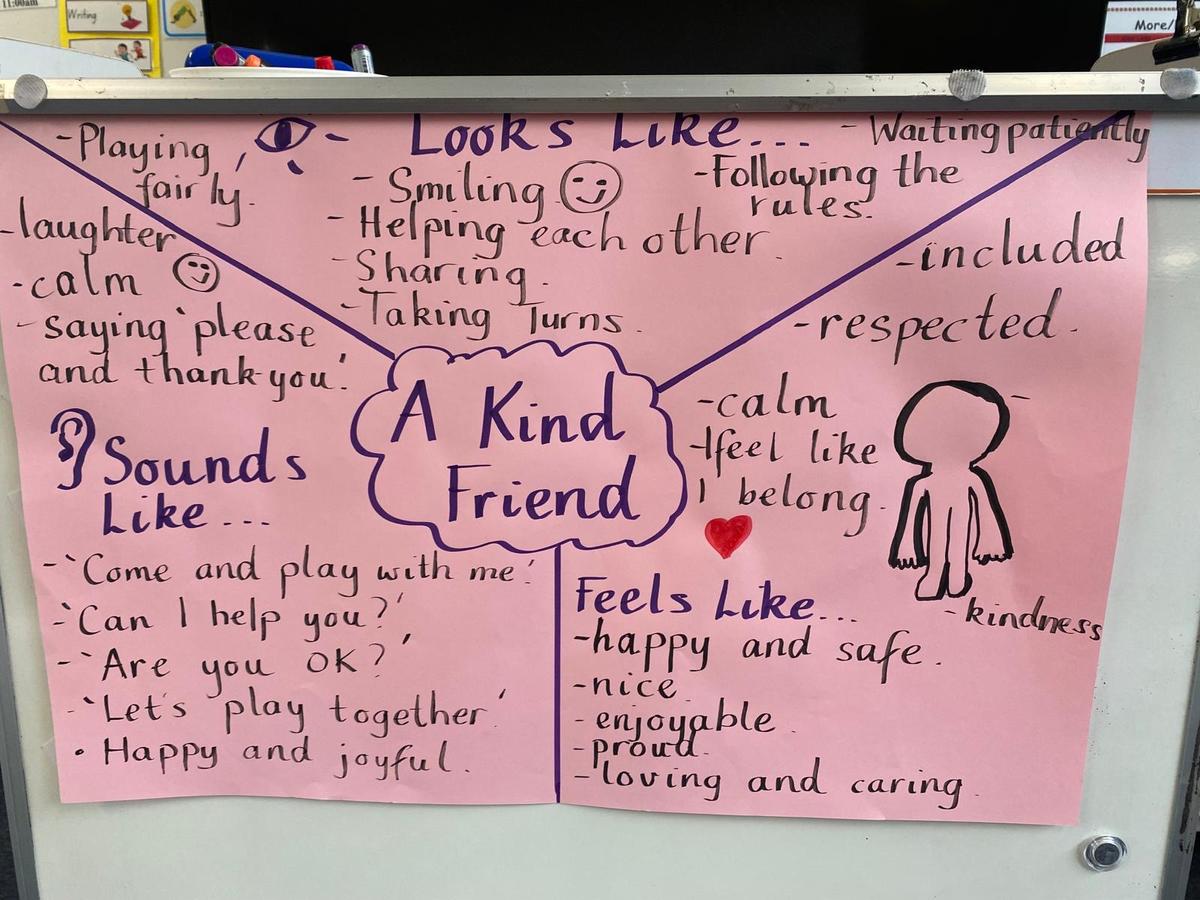 11:00am
Writing
More/
Looks Like...
- Playing
fairly.
- Smiling
- Helping each other.
- Sharing.
- Taking Turns.
- Waiting patiently
- Following the
rules.
A Kind
Friend
- laughter
- calm
- saying 'please
and thank-you'.
Sounds
Like...
- 'Come and play with me.'
- 'Can I help you?'
- 'Are you OK?'
- 'Let's play together.'
• Happy and joyful.
- included
- respected.
- calm
- I feel like
I belong.
Feels Like...
- kindness
- happy and safe.
- nice.
- enjoyable.
- proud.
- loving and caring.